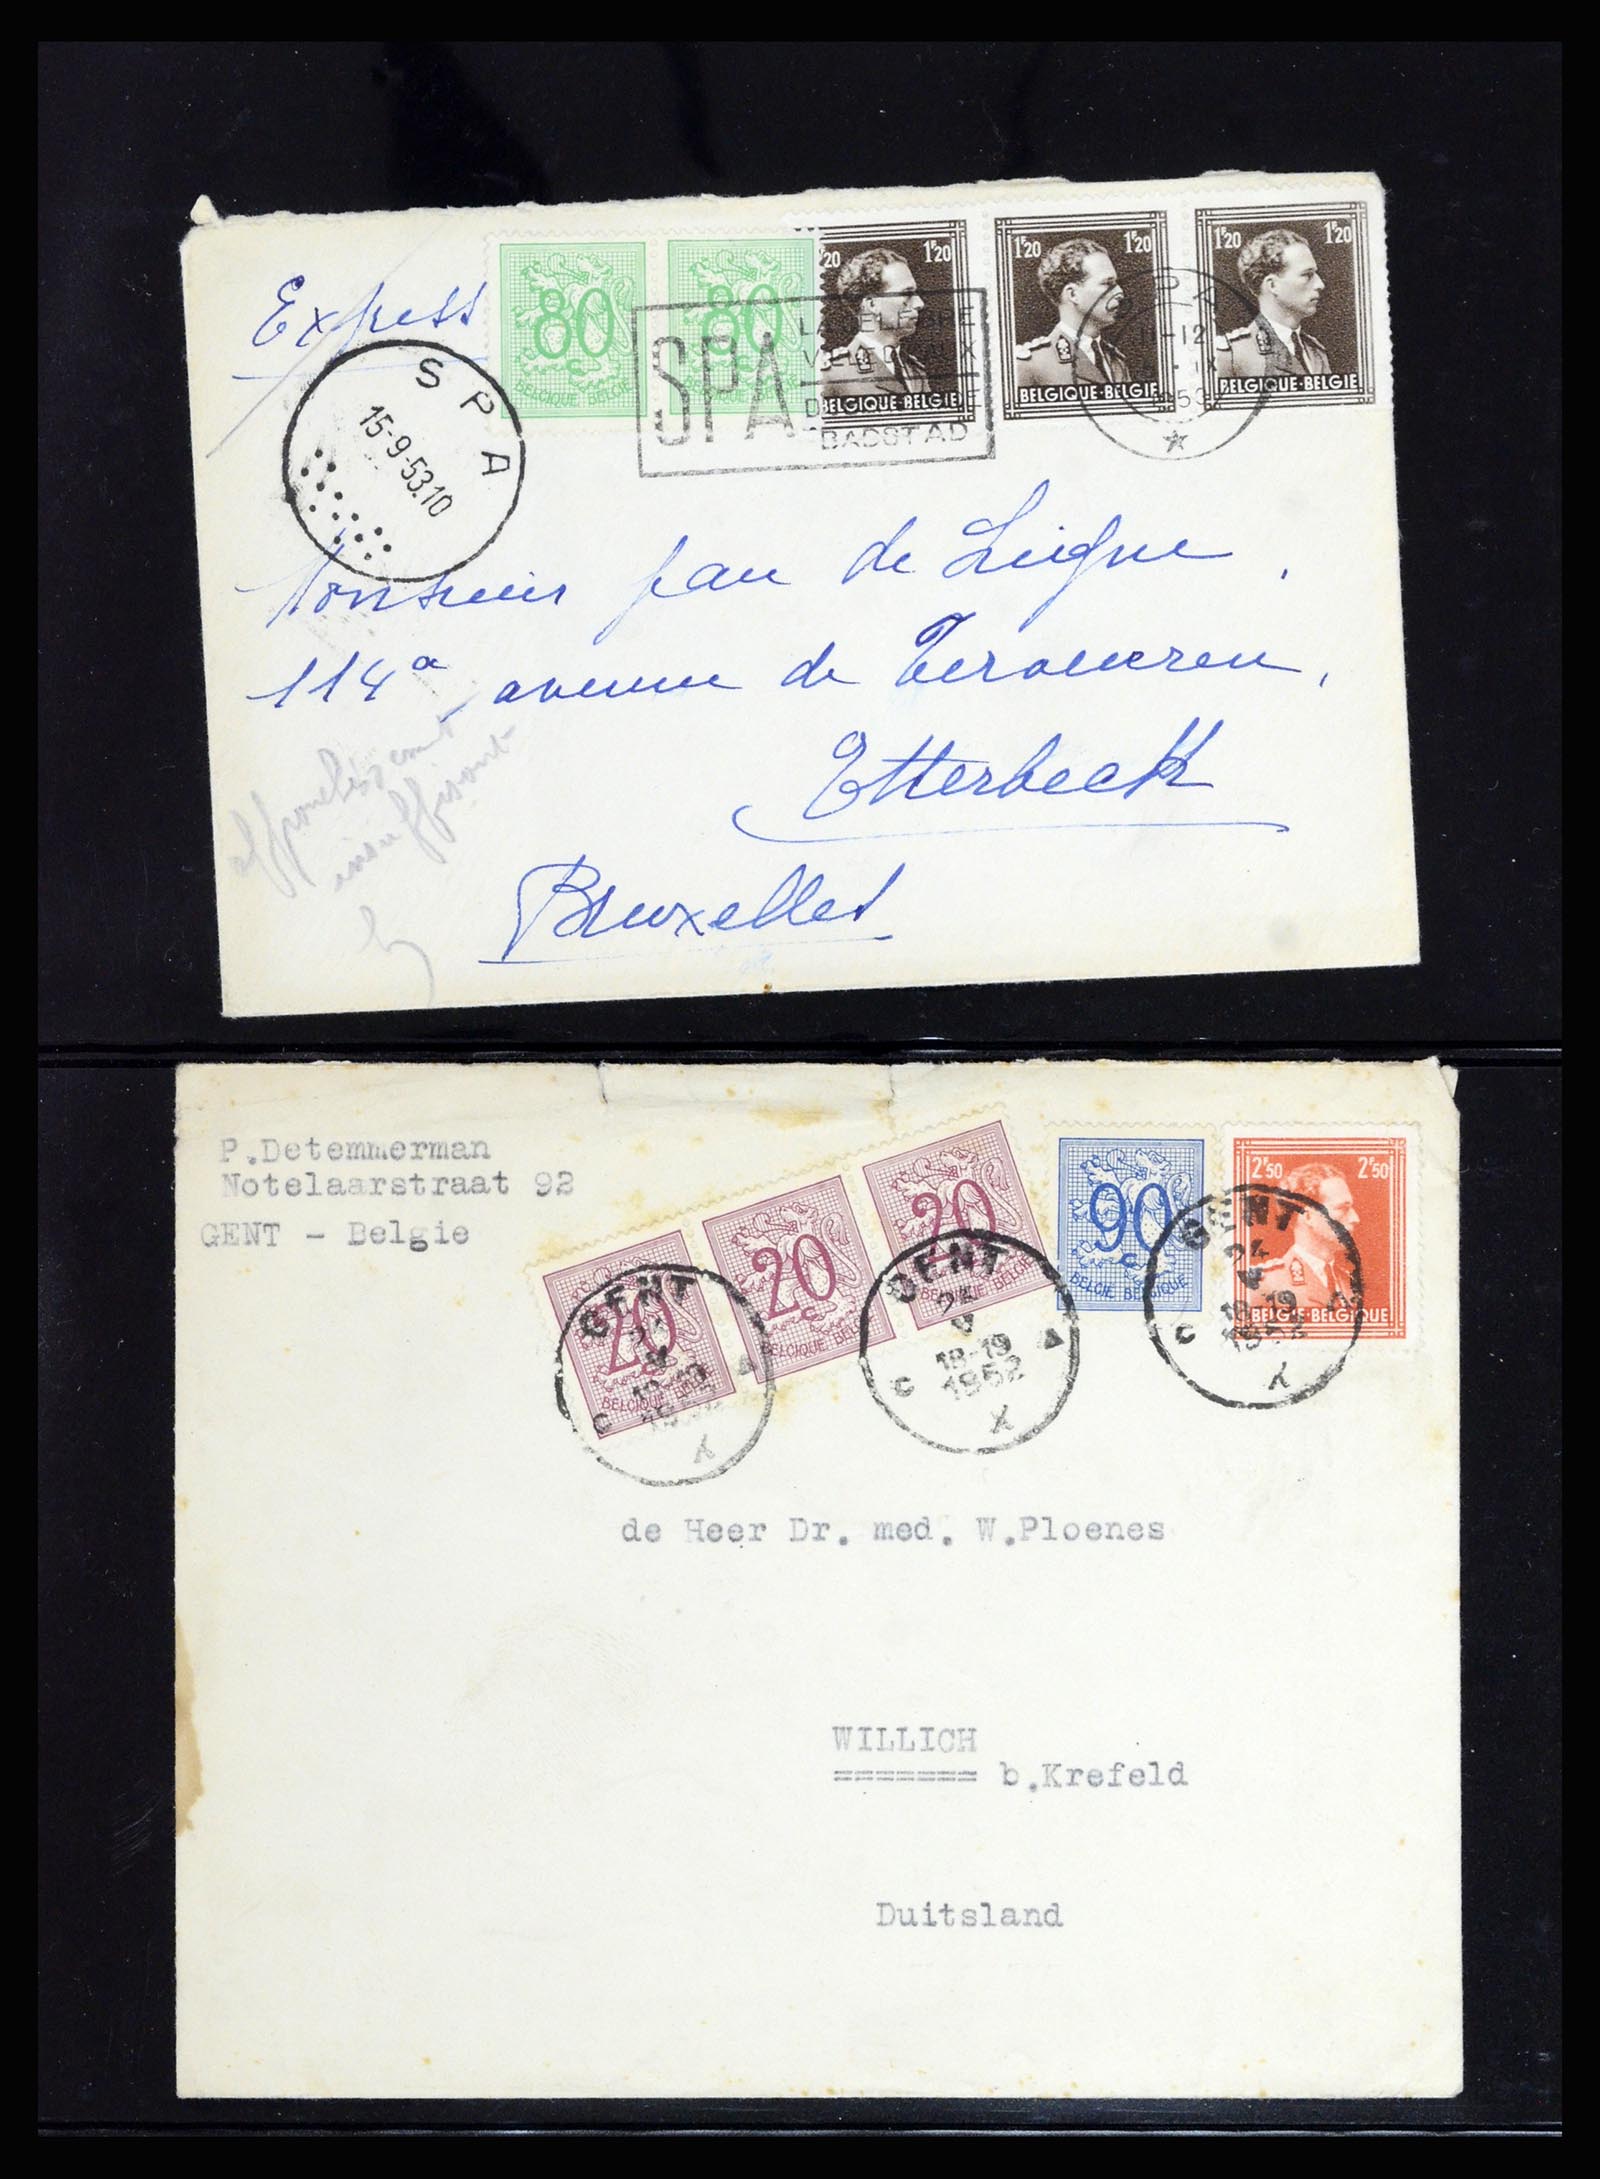 Express
80
BELGIQUE BELGIE
80
BELGIQUE BELGIE
20 1F20
BELGIQUE·BELGIE
1F20 1F20
BELGIQUE·BELGIE
1F20 1F20
BELGIQUE·BELGIE
SPA
BADSTAD
-12
IX
SPA
15-9-53.10
Monsieur Jean de Ligne,
114a avenue de Tervueren,
Etterbeek
Bruxelles
affranchissement
insuffisant
P.Detemmerman
Notelaarstraat 92
GENT - Belgie
20
BELGIQUE BELGIE
20
BELGIQUE BELGIE
20
BELGIQUE BELGIE
90
BELGIE BELGIQUE
2F50 2F50
BELGIE·BELGIQUE
GENT
C X
GENT
18-19
1952
C X
GENT
24
C X
de Heer Dr. med. W.Ploenes
WILLICH
======== b.Krefeld
Duitsland